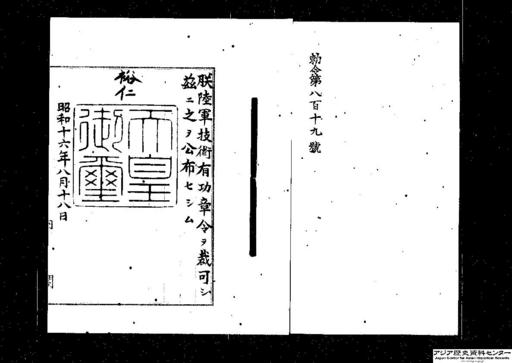 勅令第八百十九號
朕陸軍技術有功章令ヲ裁可シ
玆ニ之ヲ公布セシム
裕仁
天皇
御璽
昭和十六年八月十八日
内閣
アジア歴史資料センター
Japan Center for Asian Historical Records